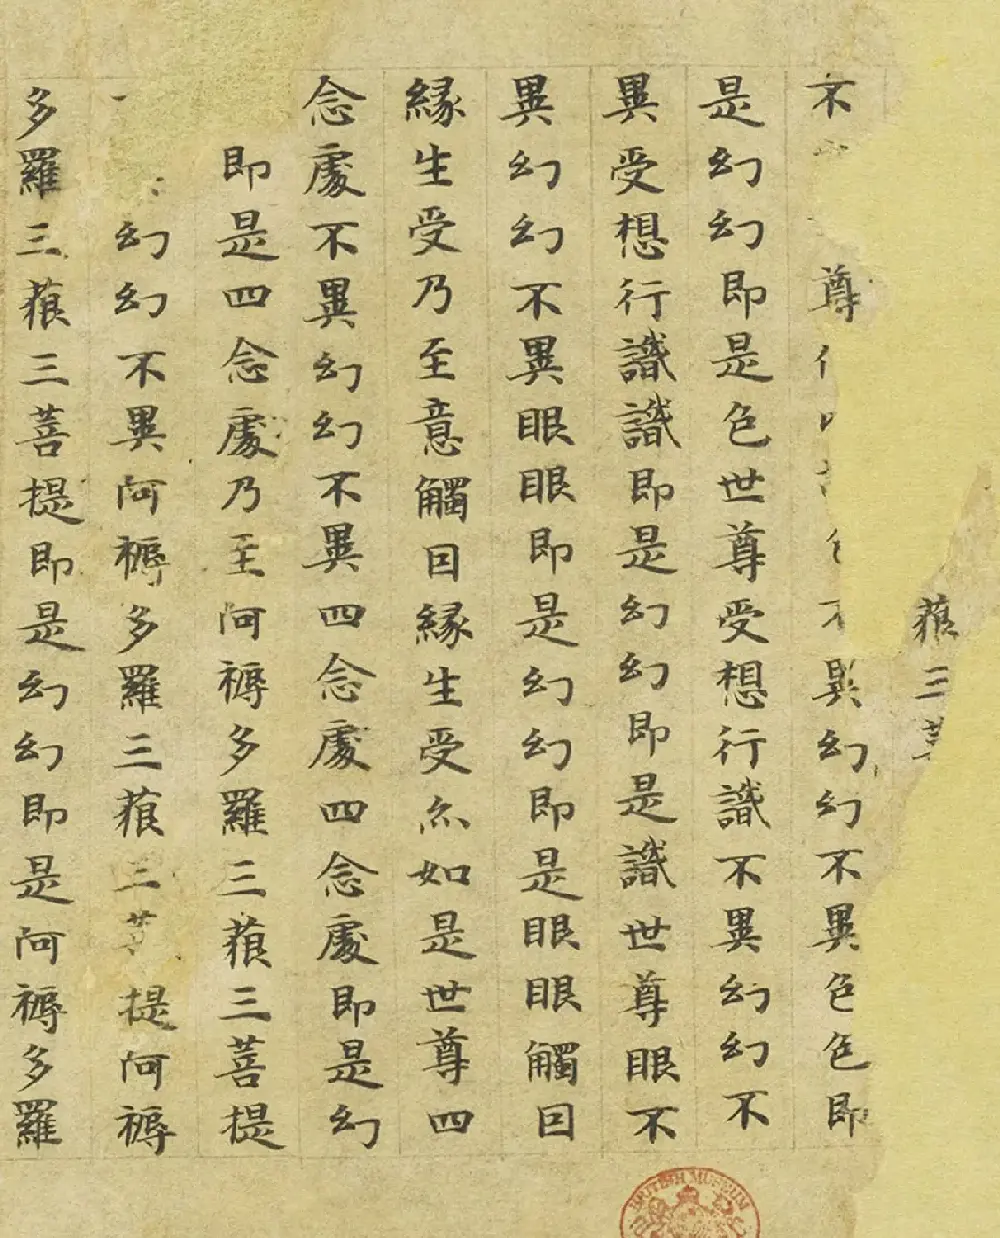 藐三菩
不尊不異幻幻不異色色即
是幻幻即是色世尊受想行識不異幻幻不
異受想行識識即是幻幻即是識世尊眼不
異幻幻不異眼眼即是幻幻即是眼眼觸因
緣生受乃至意觸因緣生受亦如是世尊四
念處不異幻幻不異四念處四念處即是幻
即是四念處乃至阿耨多羅三藐三菩提
幻幻不異阿耨多羅三藐三菩提阿耨
多羅三藐三菩提即是幻幻即是阿耨多羅
BRITISH MUSEUM